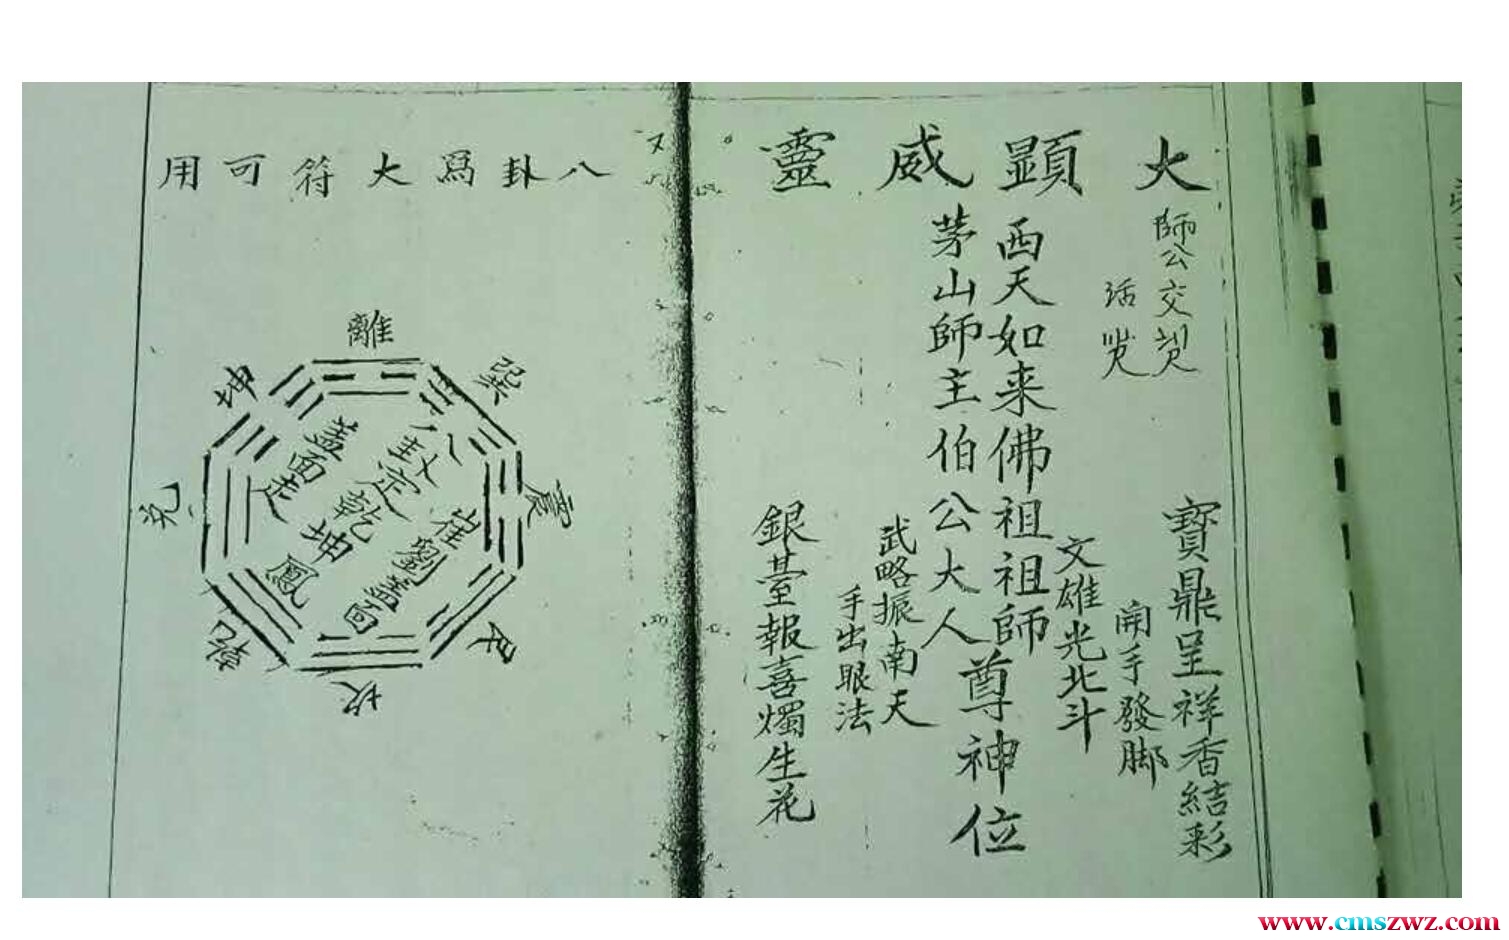 大顯威靈
師公交契
活災
寶鼎呈祥香結彩
開手發脚
文雄光北斗
西天如来佛祖祖師
茅山師主伯公大人
尊神位
武略振南天
手出眼法
銀臺報喜燭生花
八卦爲大符可用
離
巽
震
艮
坎
乾
兌
坤
八卦定乾坤
崔劉蓋面鳳
蓋面走
www.cmszwz.com